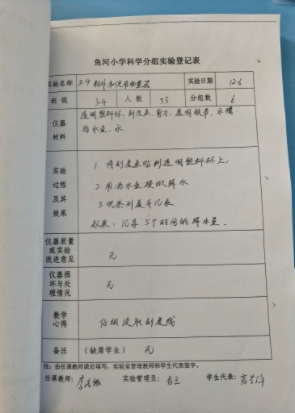 鱼河小学科学分组实验登记表
实验名称 3.4 制作和使用雨量器 实验日期 12.6
班级 3.4 人数 55 分组数 6
仪器材料 透明塑料杯、刻度表、剪刀、透明胶带、水槽
水
实验过程及其效果 1. 将刻度表贴到透明塑料杯上
2. 用洒水壶模拟降水
3. 观察刻度并记录
仪器质量或实验改进意见 无
仪器损坏与处理情况 无
教学心得 仔细读取刻度线
备注 (缺席学生) 无
注：由任课教师课后填写，实验室管理教师和学生代表签字。
任课教师： 实验管理员： 学生代表：